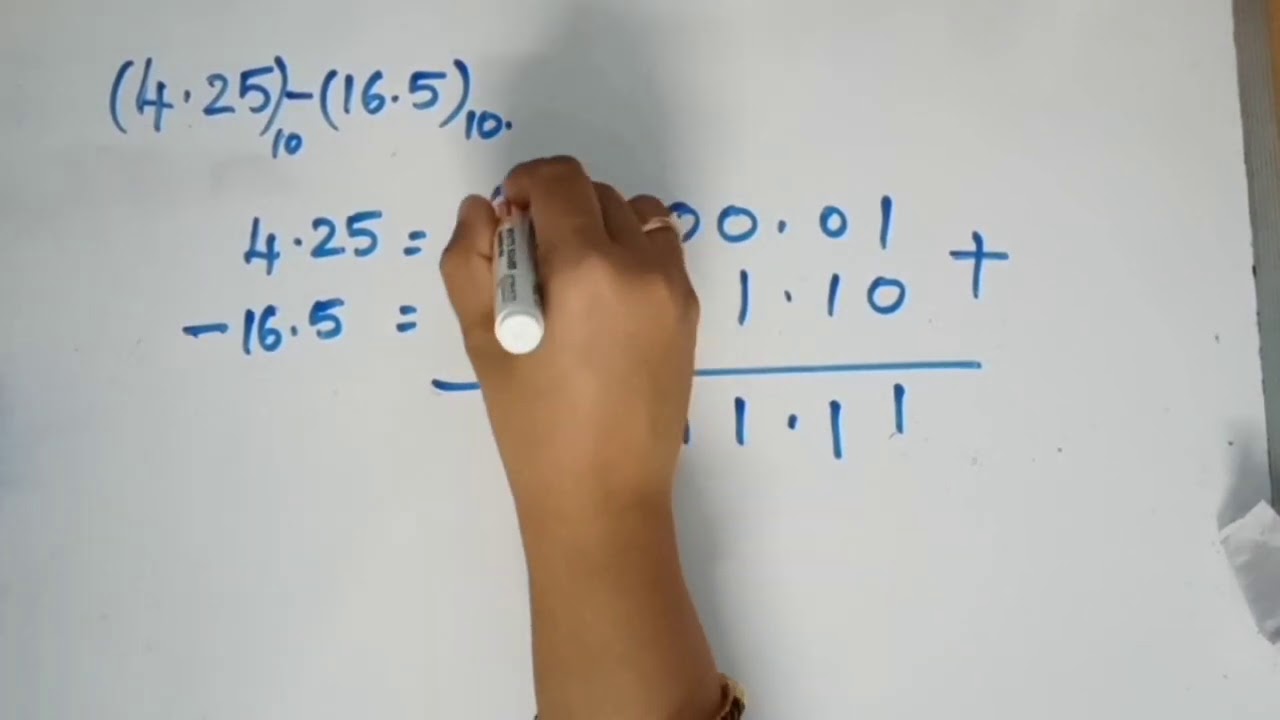 (4.25)10-(16.5)10.
4.25 = 00.01 +
-16.5 = 1.10
1.11